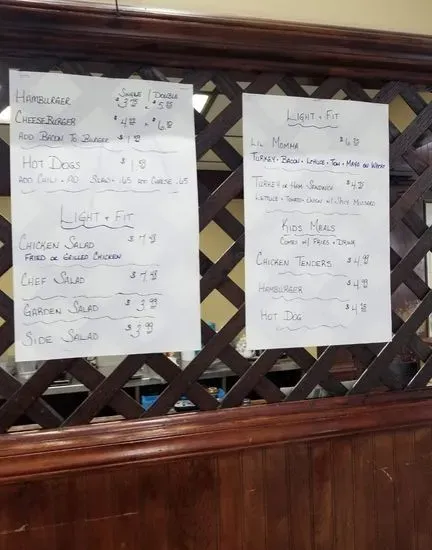 Single | Double
Hamburger $3.75 $5.75
Cheeseburger
Add Bacon To Burger
Hot Dogs
Add Chili . Slaw .65 Add Cheese .65
Light & Fit
Chicken Salad
Fried or Grilled Chicken
Chef Salad
Garden Salad $3.99
Side Salad $3.99
Light & Fit
Lil Momma
Turkey Bacon Lettuce Tom Mayo on Wheat
Turkey or Ham Sandwich
Lettuce Tomato Onion w/ Spicy Mustard
Kids Meals
Comes w/ Fries & Drink
Chicken Tenders
Hamburger
Hot Dog